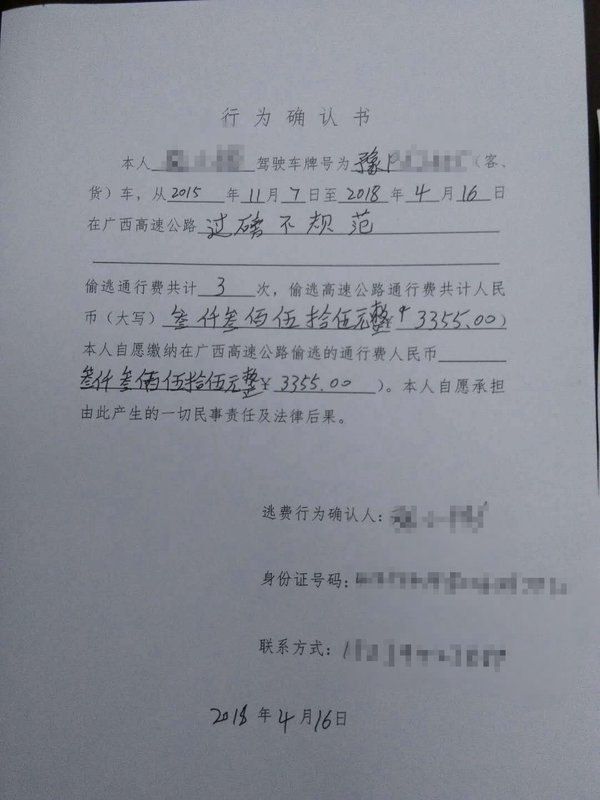 行为确认书
本人 驾驶车牌号为 豫 （客、
货）车，从 2015 年 11 月 7 日至 2018 年 4 月 16 日
在广西高速公路 过磅不规范
偷逃通行费共计 3 次，偷逃高速公路通行费共计人民
币（大写）叁仟叁佰伍拾伍元整￥3355.00）
本人自愿缴纳在广西高速公路偷逃的通行费人民币
叁仟叁佰伍拾伍元整￥3355.00）。本人自愿承担
由此产生的一切民事责任及法律后果。
逃费行为确认人：
身份证号码：
联系方式：
2018 年 4 月 16 日